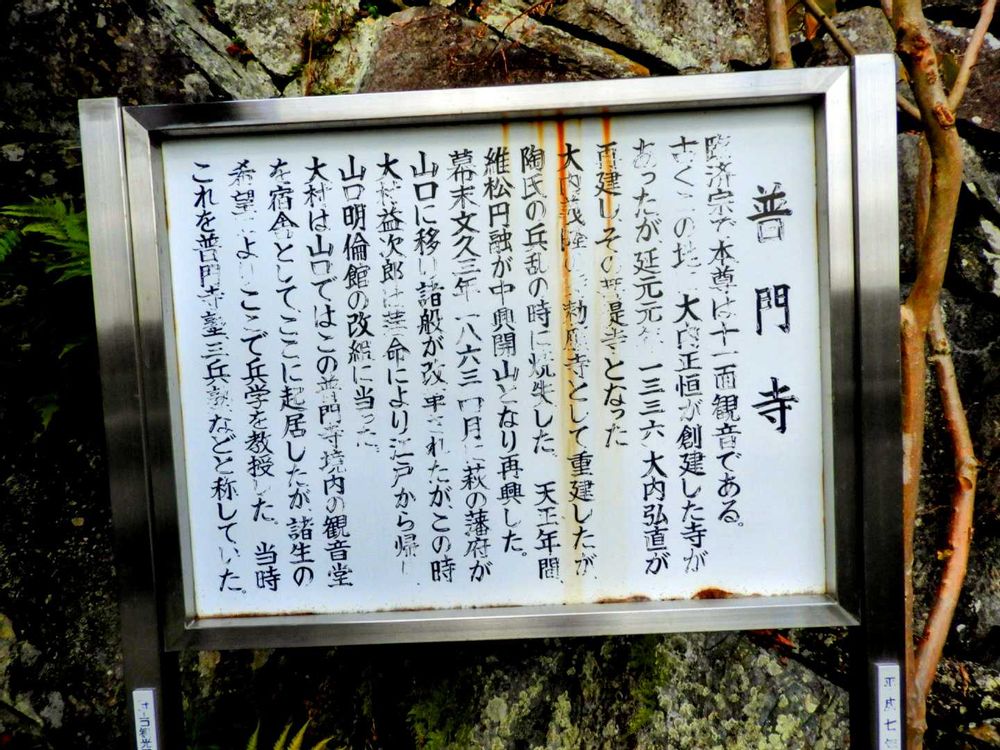 普門寺
臨済宗で本尊は十一面観音である。
古くこの地に大内正恒が創建した寺が
あったが延元元年 一三三六 大内弘直が
再建しその菩提寺となった
大内義隆の 勅願寺として重建したが
陶氏の兵乱の時に焼失した。 天正年間
維松円融が中興開山となり再興した。
幕末文久三年 一八六三 四月に萩の藩府が
山口に移り諸般が改革されたがこの時
大村益次郎は藩命により江戸から帰り
山口明倫館の改組に当った。
大村は山口ではこの普門寺境内の観音堂
を宿舎として、ここに起居したが、諸生の
希望によりここで兵学を教授した。 当時
これを普門寺塾三兵塾などと称していた。
平成七年